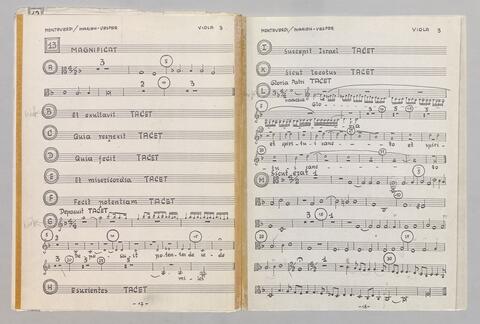 MONTEVERDI/MARIEN-VESPER VIOLA 3
13 MAGNIFICAT
A 3 5
2 10 3
B Et exultavit TACET
C Quia respexit TACET
D Quia fecit TACET
E Et misericordia TACET
F Fecit potentiam TACET
G Deposuit TACET
De po su it po ten tes de se de
H Esurientes TACET
- 17 -
MONTEVERDI/MARIEN-VESPER VIOLA 3
I Suscepit Israel TACET
K Sicut locutus TACET
L Gloria Patri TACET
Glo
ria
et spi ri tu i sanc to et spi ri
tu i sanc to
M Sicut erat 1
3
- 18 -